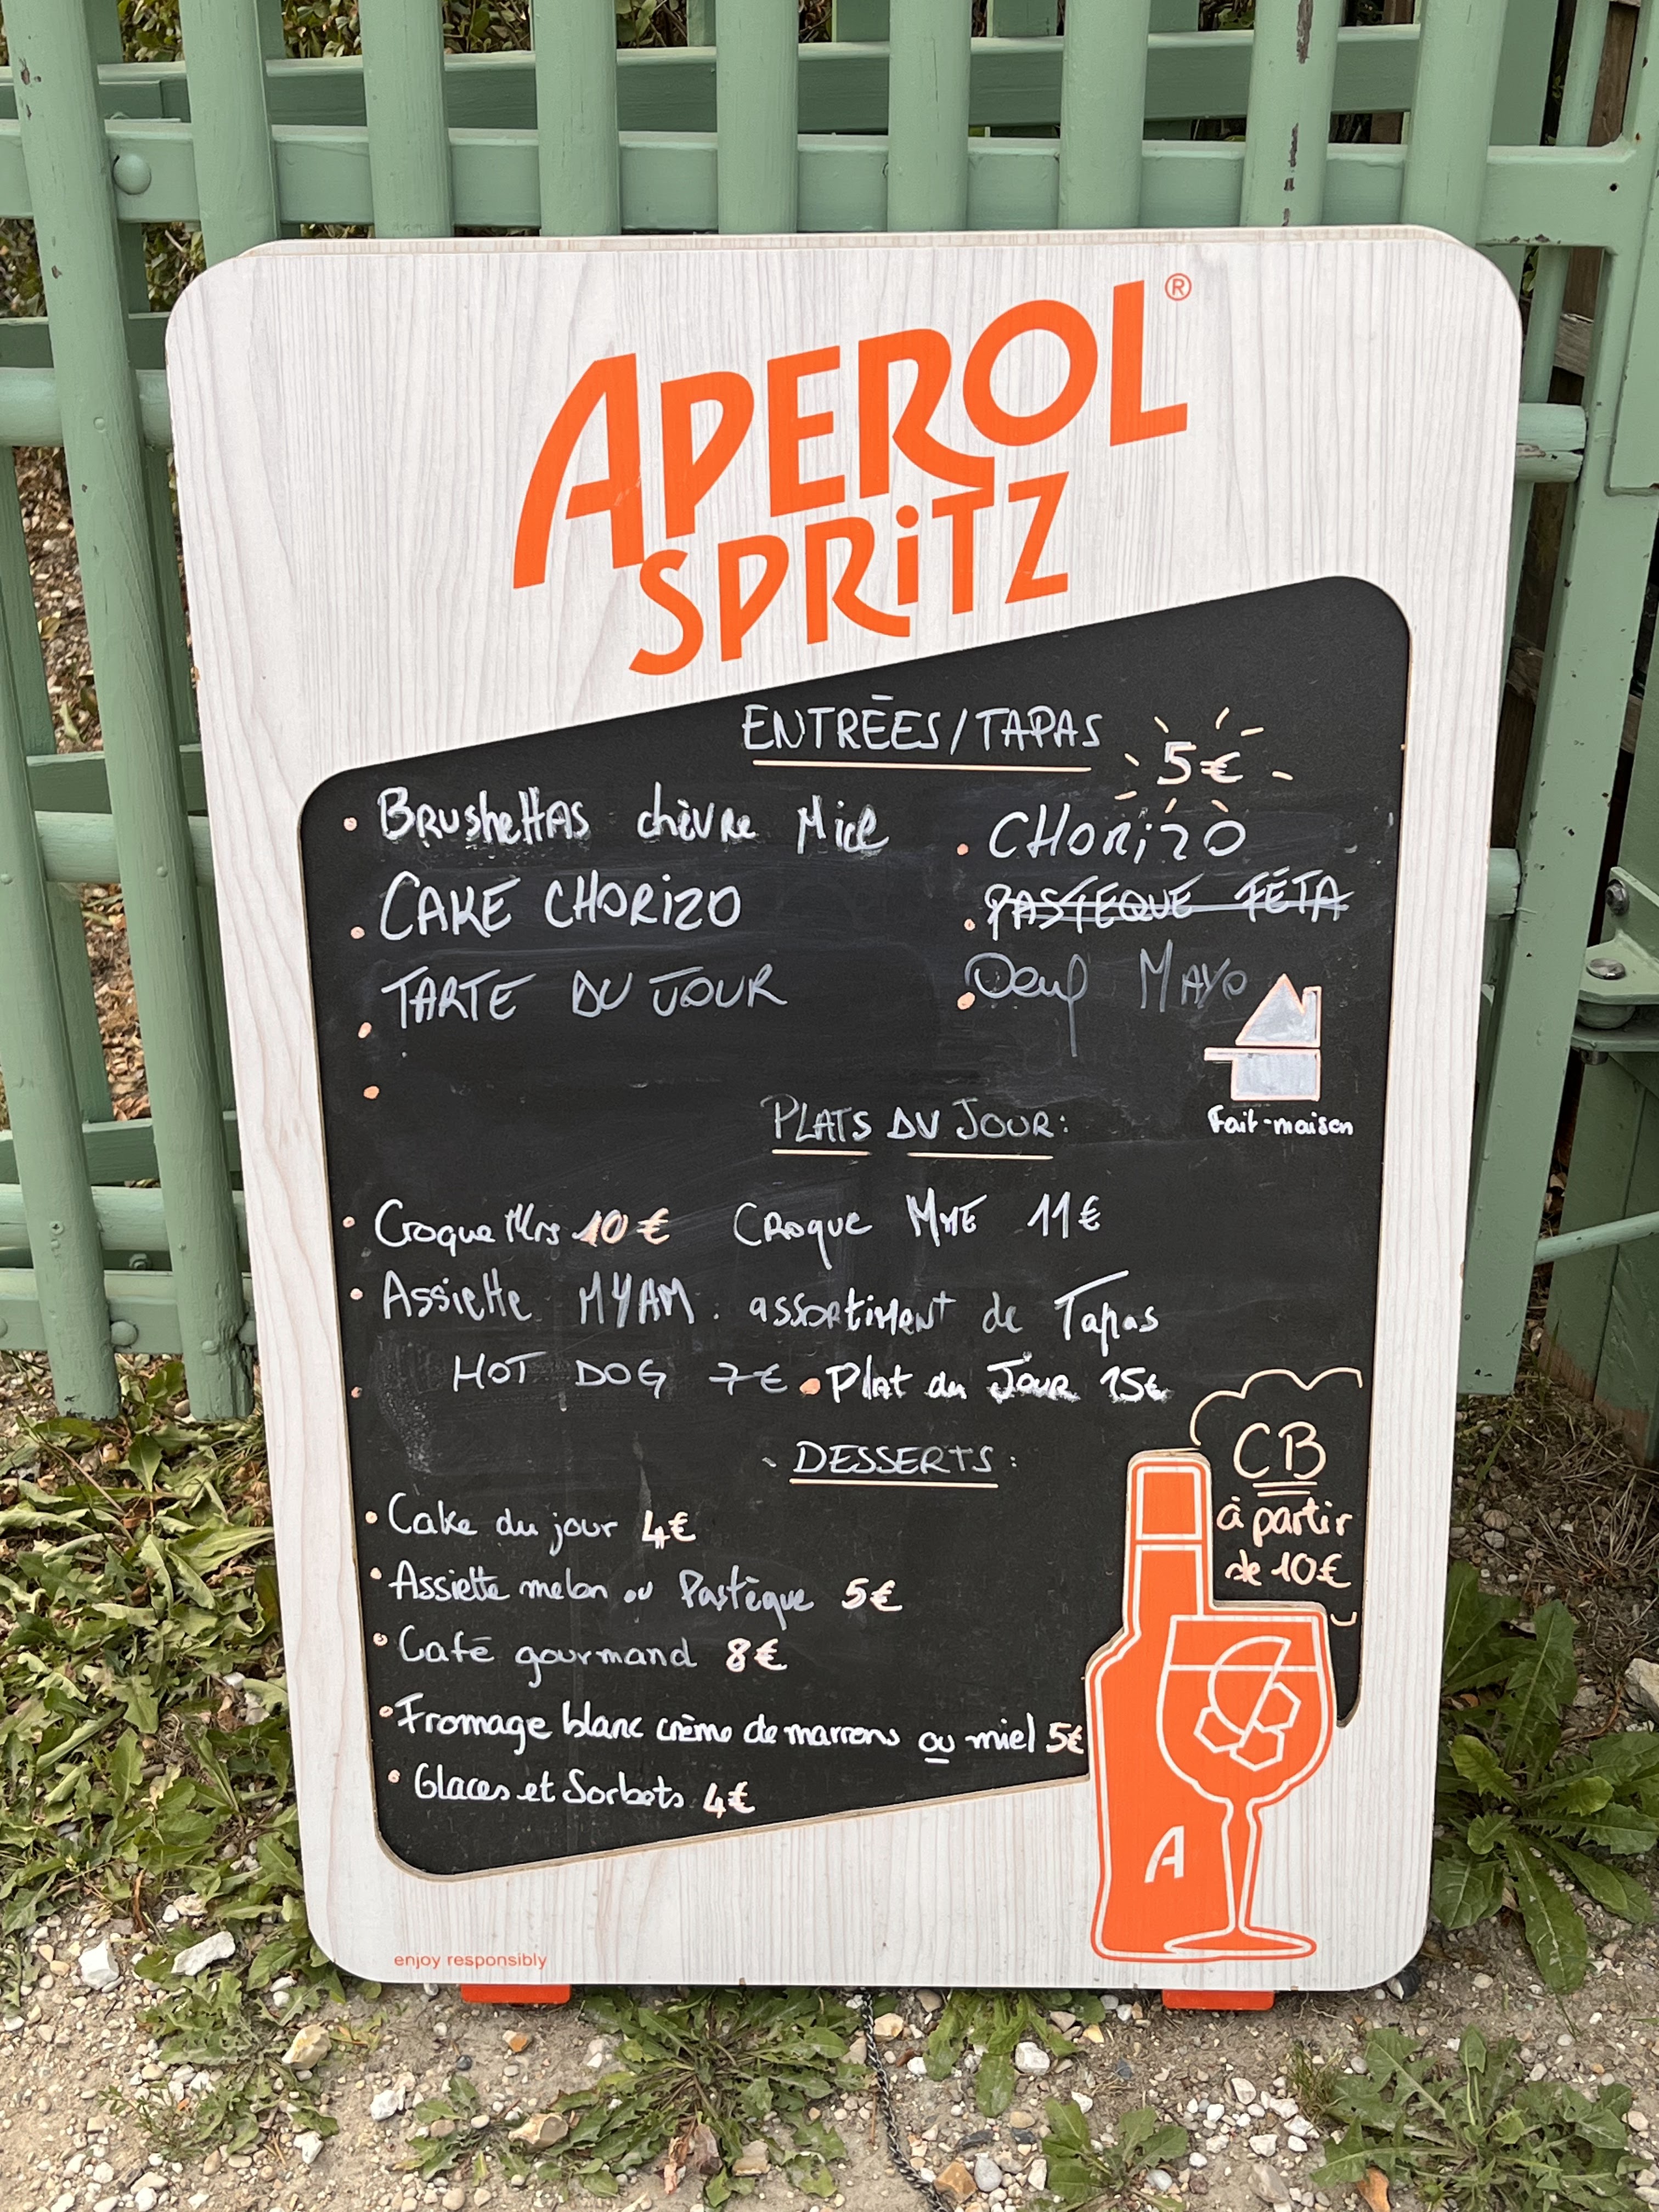 APEROL®
SPRiTZ
ENTRÉES/TAPAS
5€
• BRushettAS chèvre Miel
• CHORizO
• CAKE CHORIZO
• PASTEQUE FETA
• TARTE DU JOUR
• Oeuf MAYO
Fait-maison
PLATS DU JOUR:
• Croque Mrs 10€ CROque MME 11€
• Assiette MYAM. assortiment de Tapas
• HOT DOG 7€ • Plat du Jour 15€
DESSERTS:
• Cake du jour 4€
• Assiette melon ou Pastèque 5€
• Café gourmand 8€
• Fromage blanc crème de marrons ou miel 5€
• Glaces et Sorbets 4€
CB
à partir
de 10€
A
enjoy responsibly